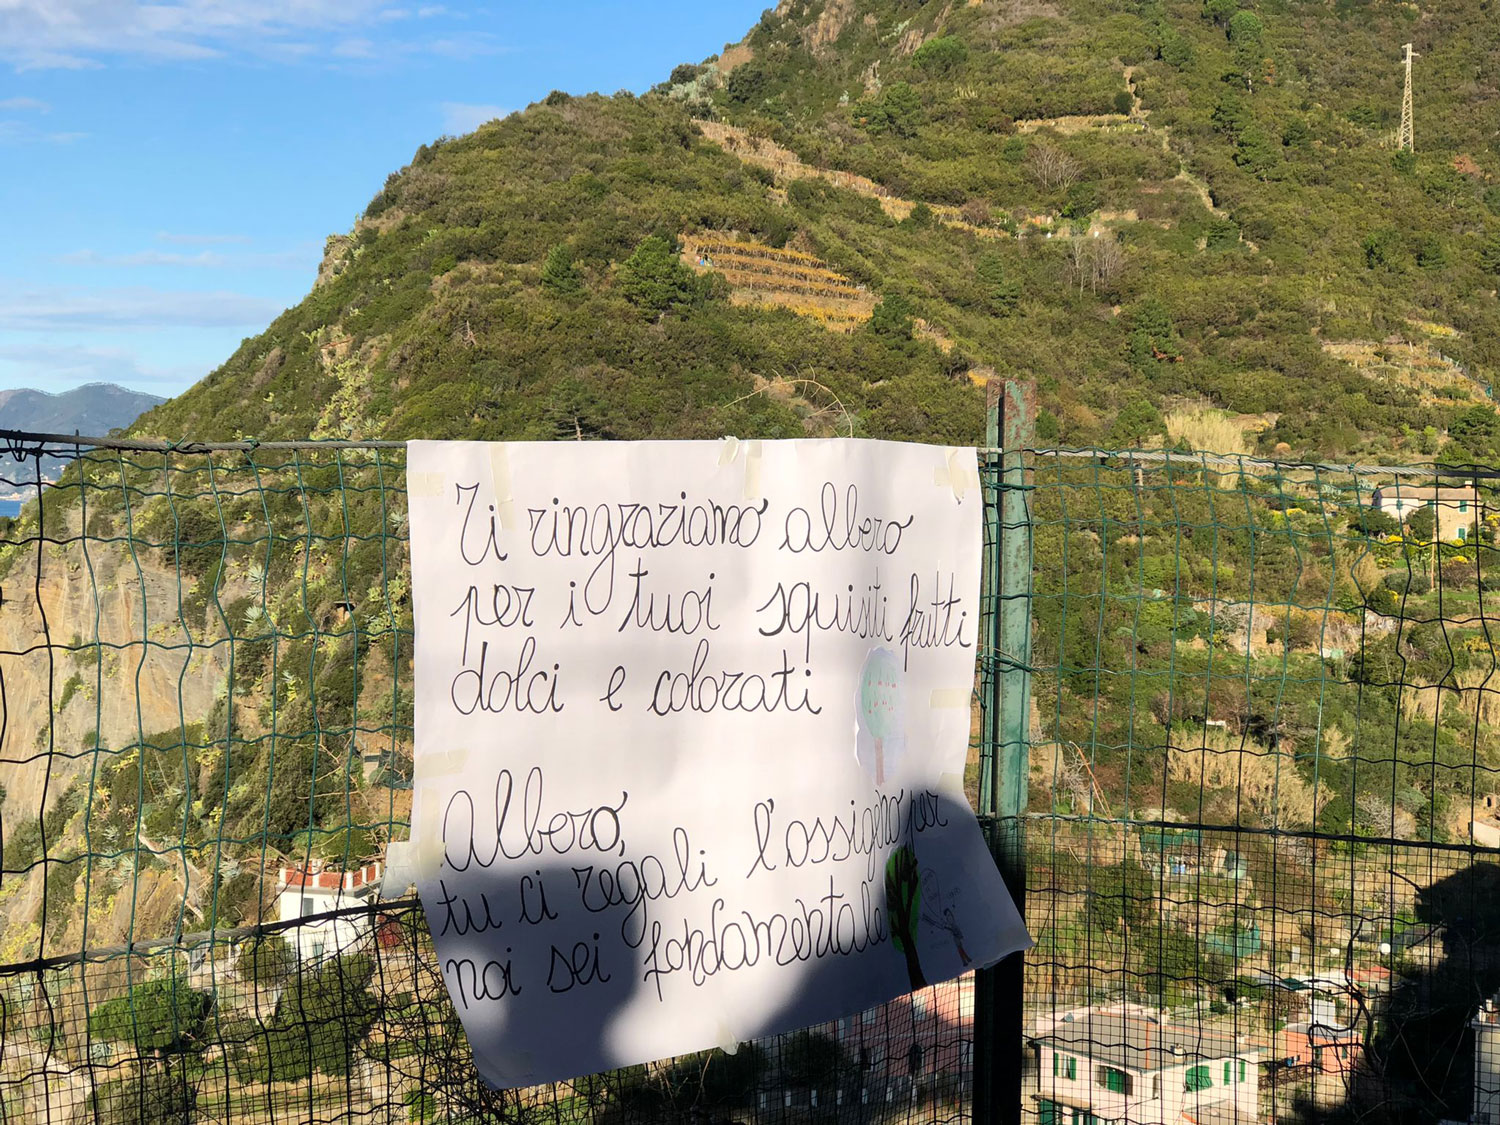 Ti ringraziamo albero
per i tuoi squisiti frutti
dolci e colorati
Albero,
tu ci regali l'ossigeno per
noi sei fondamentale